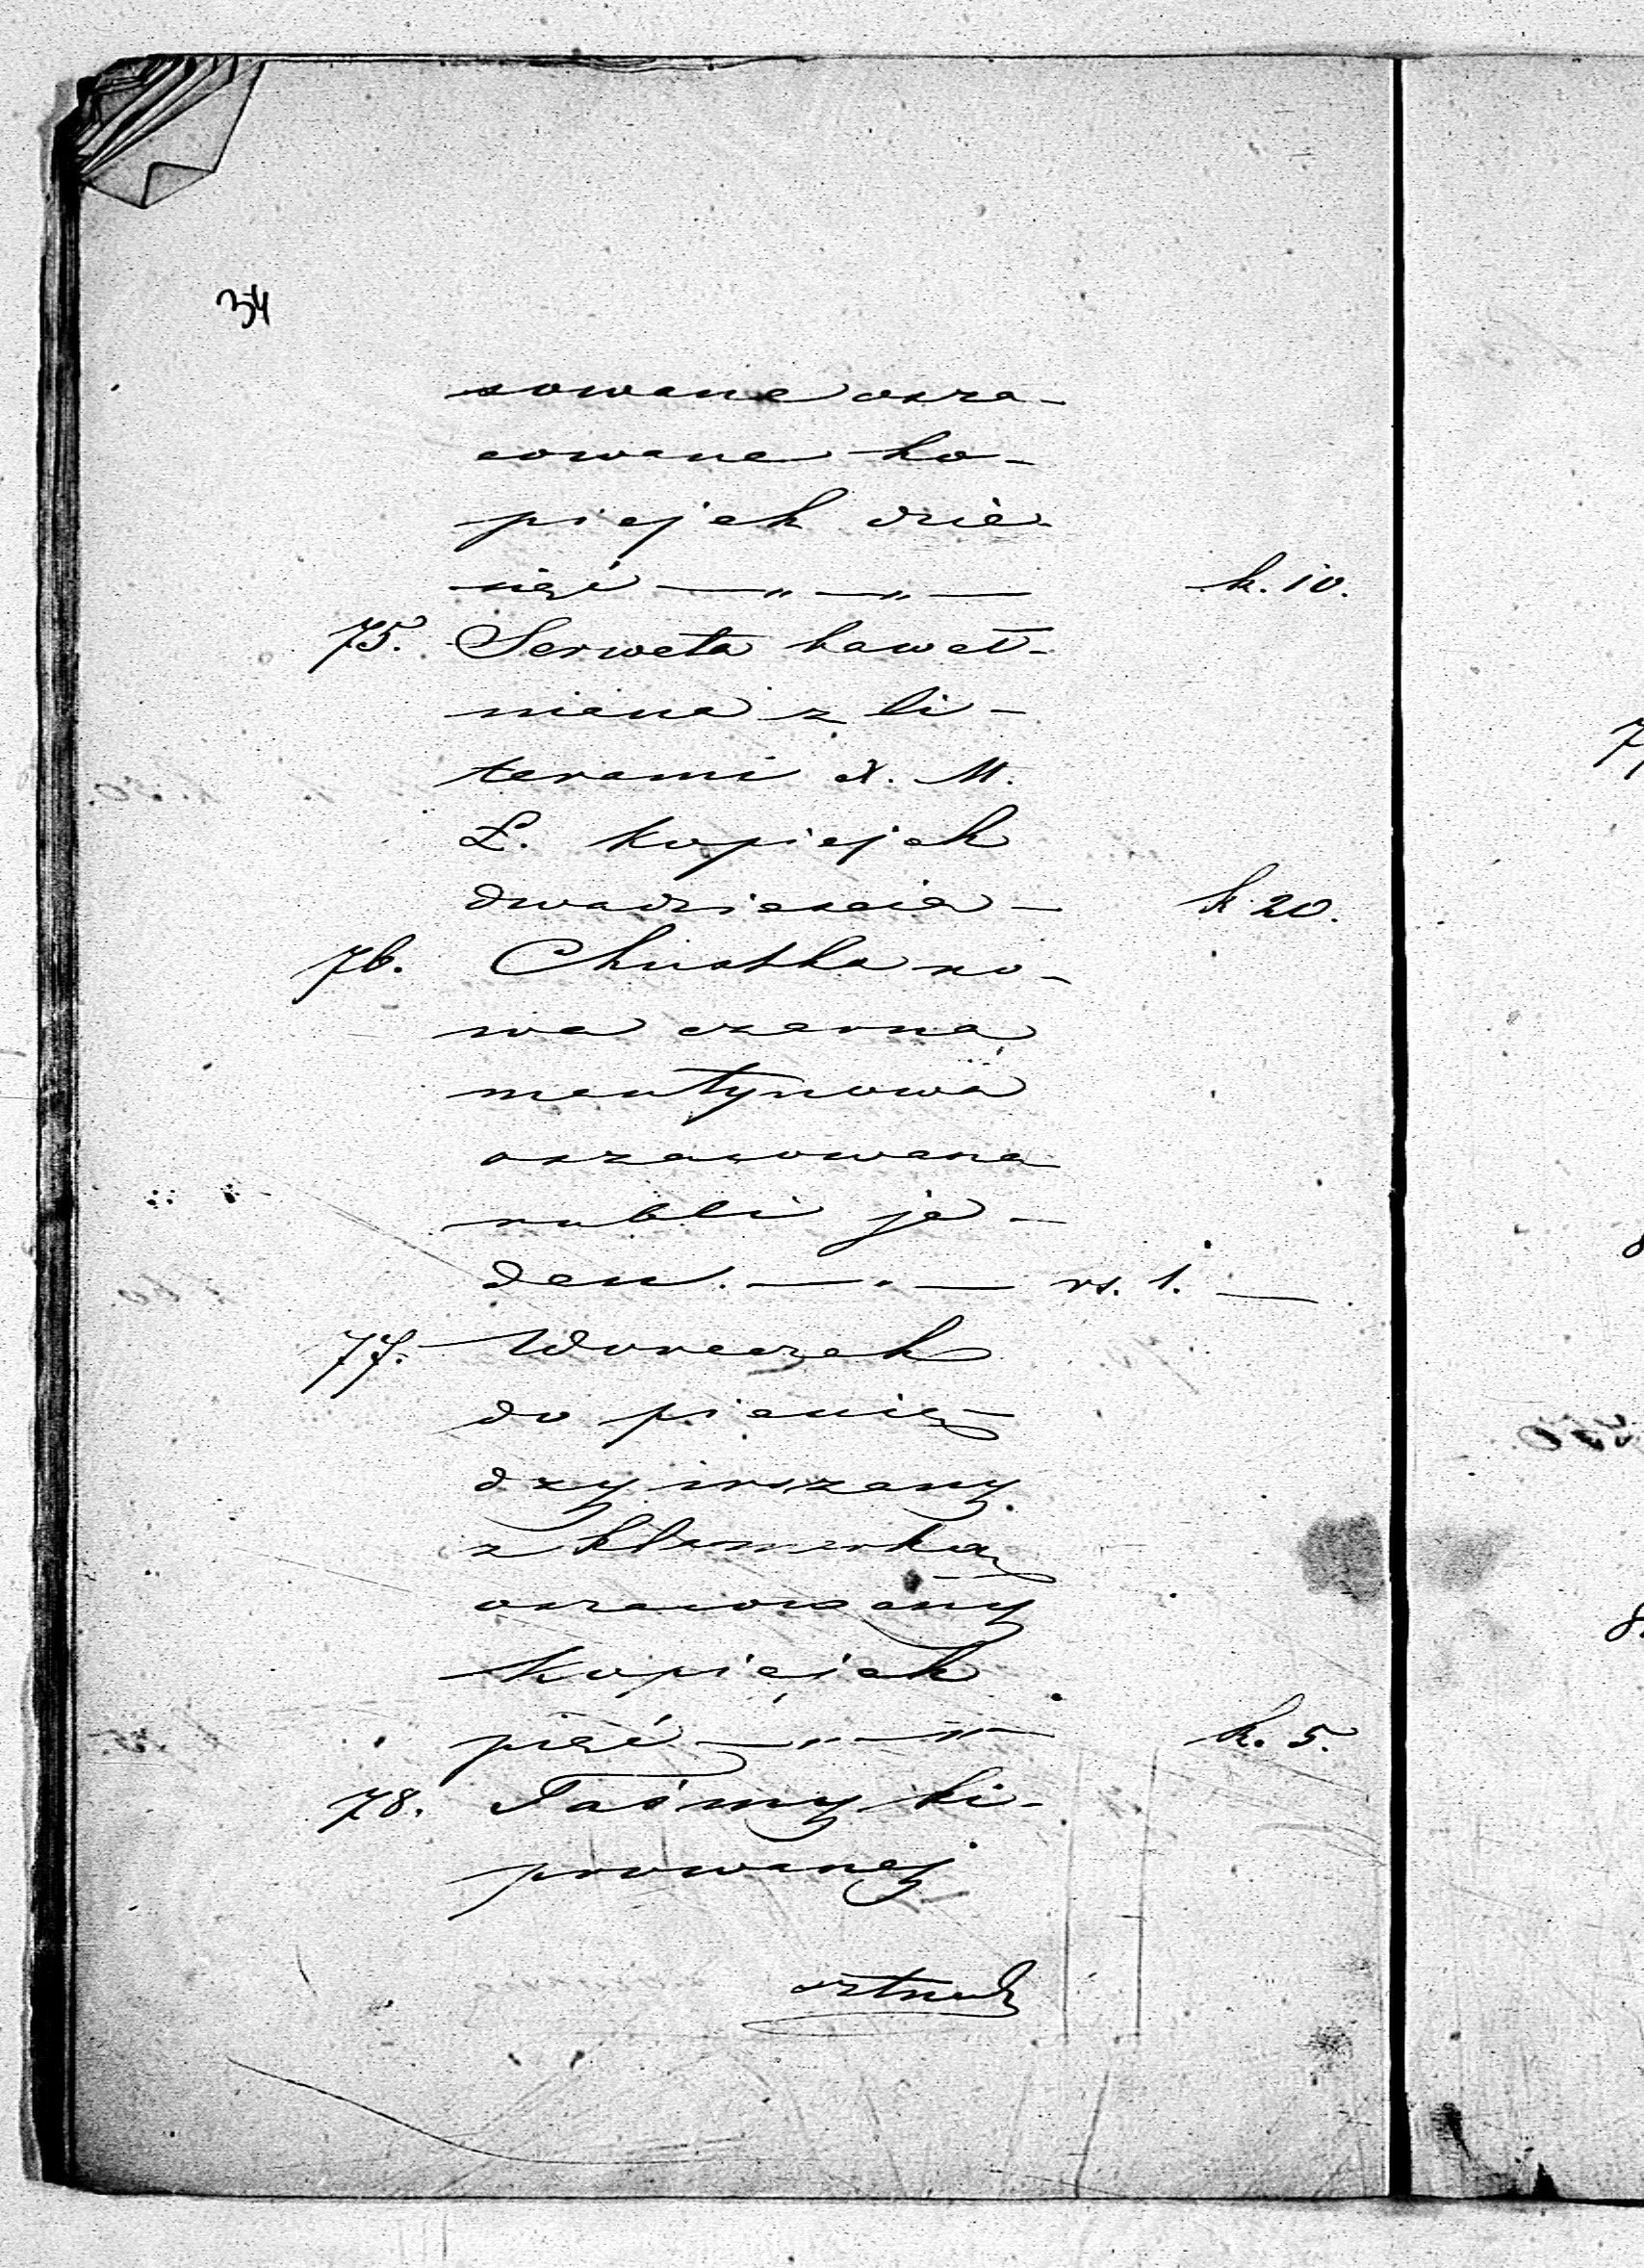 34
sowane osza-
cowane ko-
piejek dzie-
sięć —„—„— k. 10.
75. Serweta baweł-
niana z li-
terami A. M.
L. kopiejek
dwadzieścia — k 20.
76. Chustka no-
wa czarna
oszacowana
rubli je-
den. —„— rs. 1. —
77. Woreczek
do pienię-
dzy irszany
z klamerką
oszacowany
kopiejek
pięć —„—„— k. 5.
78. Taśmy ki-
prowanej
sztuk